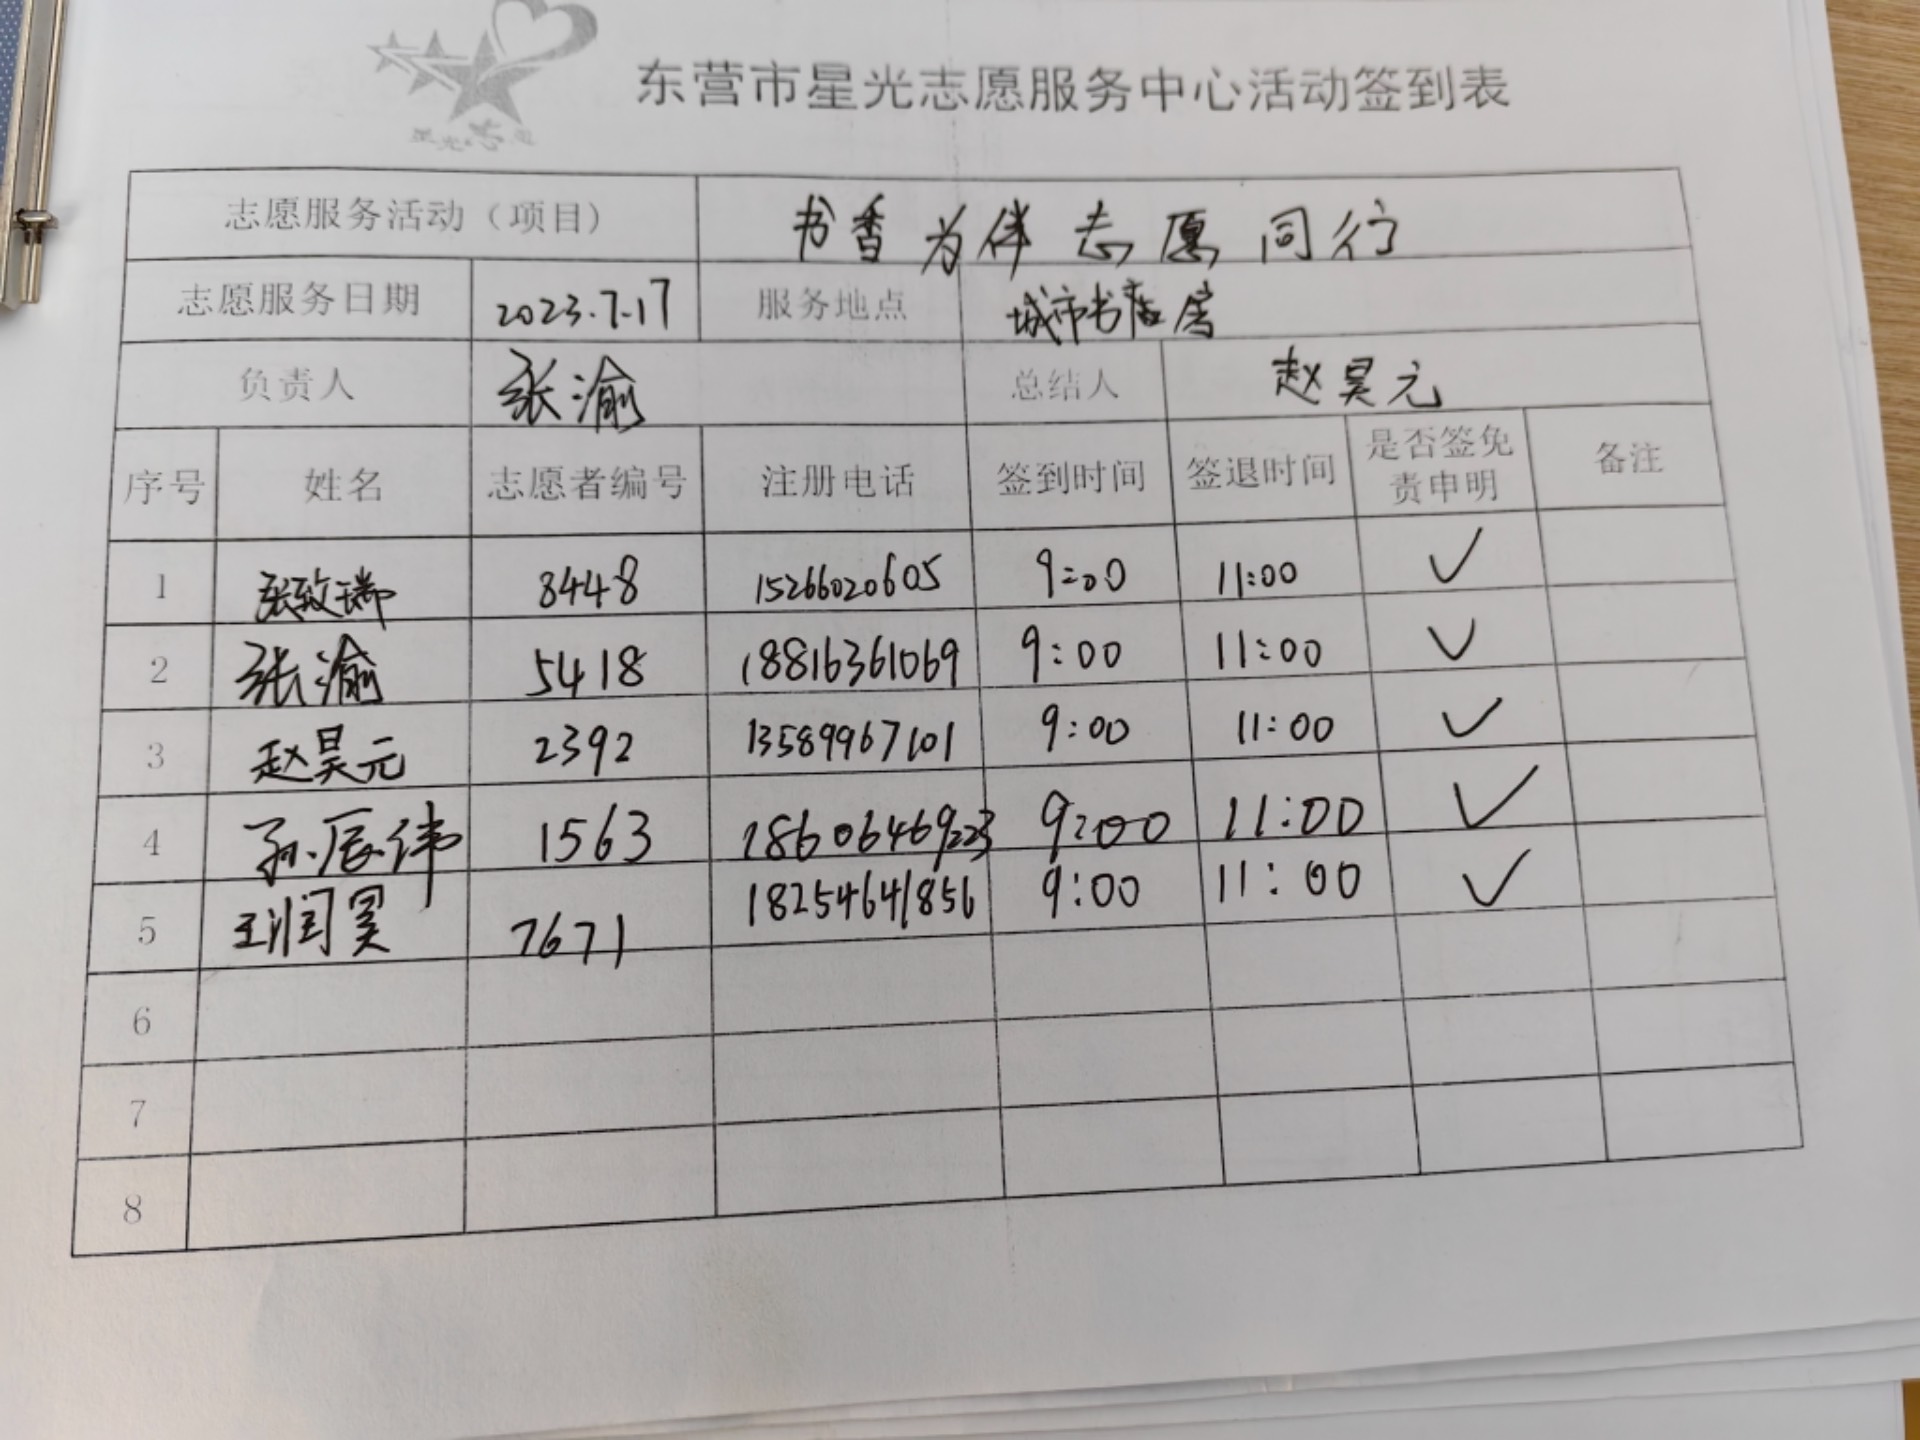 东营市星光志愿服务中心活动签到表
志愿服务活动（项目） 书香为伴 志愿同行
志愿服务日期 2023.7.17 服务地点 城市书房
负责人 张渝 总结人 赵昊元
序号 姓名 志愿者编号 注册电话 签到时间 签退时间 是否签免责申明 备注
1 张致瑞 8448 15266020605 9:00 11:00 ✓
2 张渝 5418 18816361069 9:00 11:00 ✓
3 赵昊元 2392 13589967101 9:00 11:00 ✓
4 孙辰伟 1563 18606469223 9:00 11:00 ✓
5 王润昊 7671 18254641856 9:00 11:00 ✓
6
7
8